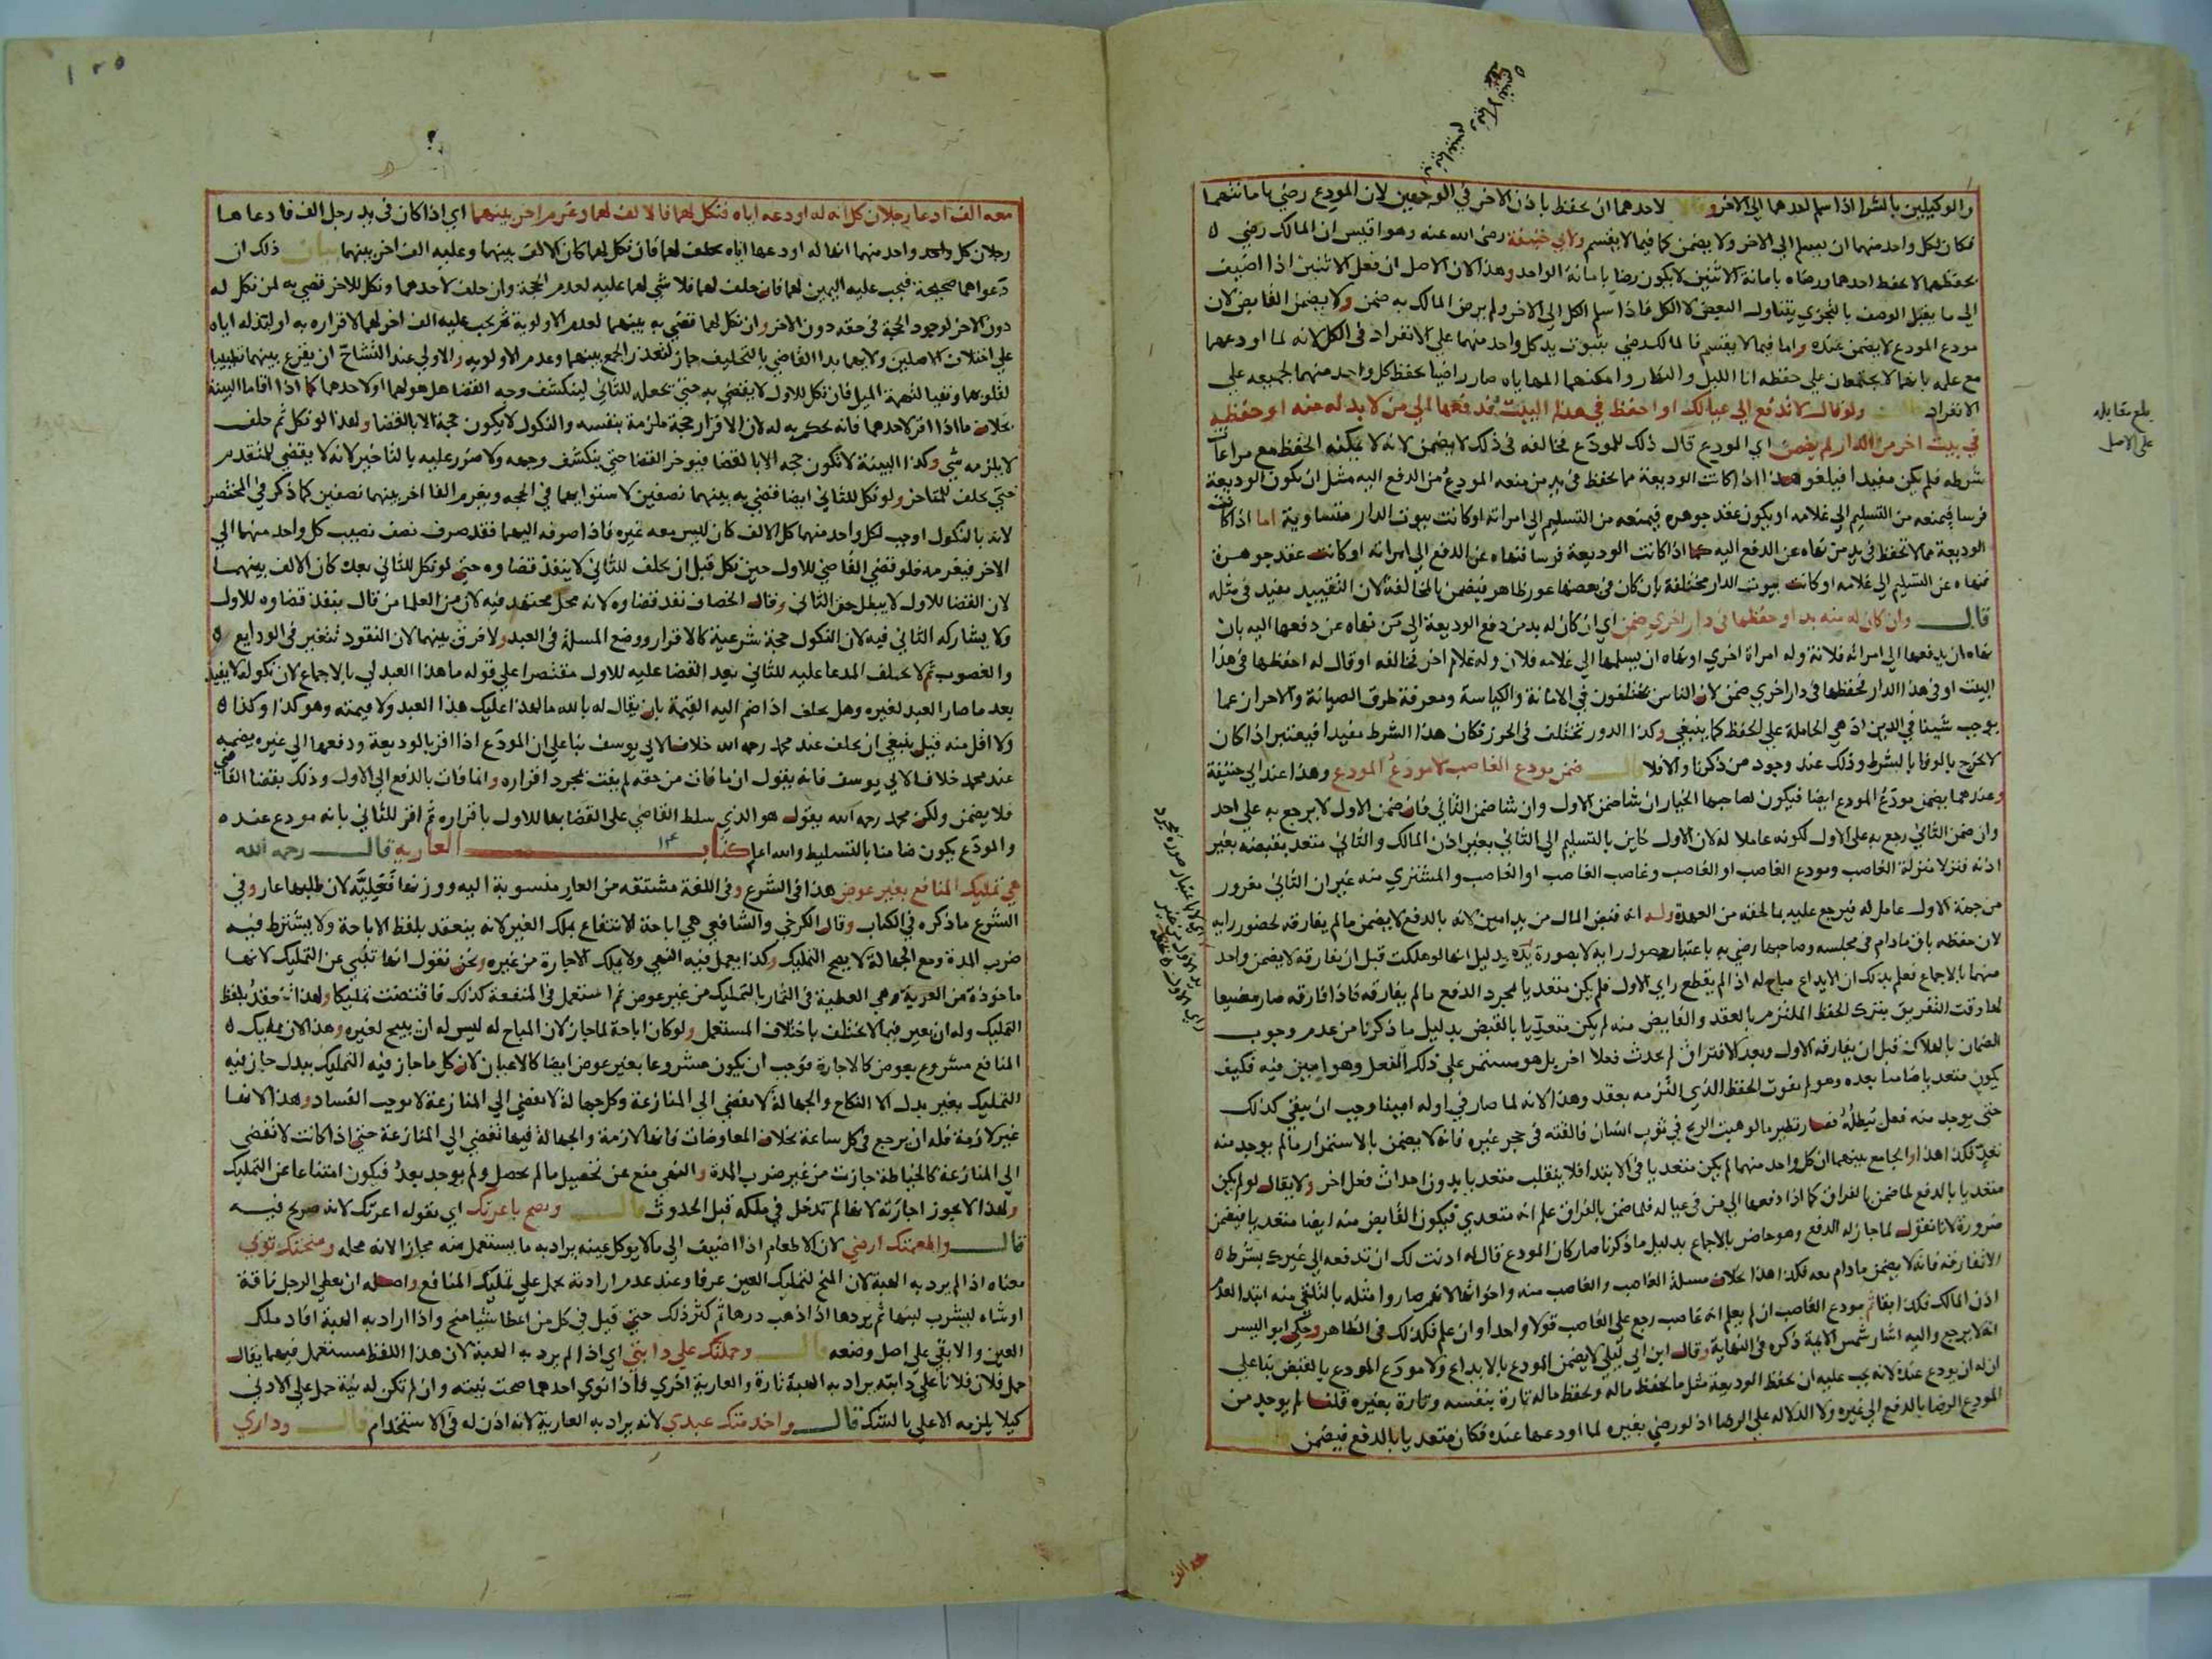 والوكيلين بالشرا اذا سلم احدهما الى الاخر وقالا لاحدهما ان يحفظ باذن الاخر في الوجهين لان المودع رضي بامانتهما
فكان لكل واحد منهما ان يسلم الى الاخر ولا يضمن كما فيما لا يقسم ولابي حنيفة رضي الله عنه وهو اقيس ان المالك رضي
بحفظهما لا بحفظ احدهما ورضاه بامانة الاثنين لا يكون رضا بامانة الواحد وهذا لان الاصل ان فعل الاثنين اذا اضيف
الى ما يقبل الوصف بالتجزي يتناول البعض لا الكل فاذا سلم الكل الى الاخر ولم يرض المالك به ضمن ولا يضمن القابض لان
مودع المودع لا يضمن عنده واما فيما لا يقسم فالمالك رضي بثبوت يد كل واحد منهما على الانفراد في الكل لانه لما اودعهما
مع علمه بانهما لا يجتمعان على حفظه انا الليل والنهار وامكنهما المهاياه صار راضيا بحفظ كل واحد منهما لجميعه على
الانفراد قال ولو قال لا تدفع الى عيالك او احفظ في هذا البيت فدفعها الى من لا بد له منه او حفظه
في بيت اخر من الدار لم يضمن اي المودع قال ذلك للمودع فخالفه في ذلك لا يضمن لانه لا يمكنه الحفظ مع مراعات
شرطه فلم يكن مفيدا فيلغو هذا اذا كانت الوديعة مما يحفظ في يد من منعه المودع من الدفع اليه مثل ان يكون الوديعة
فرسا فيمنعه من التسليم الى غلامه او يكون عقد جوهر فيمنعه من التسليم الى امراته او كانت بيوت الدار متساوية اما اذا كانت
الوديعة مما لا تحفظ في يد من نهاه عن الدفع اليه كما اذا كانت الوديعة فرسا فنهاه عن الدفع الى امراته او كانت عقد جوهر
فنهاه عن التسليم الى غلامه او كانت بيوت الدار مختلفة بان كان في بعضها عور ظاهر فيضمن بالمخالفة لان التقييد مفيد في مثله
قال وان كان له منه بد او حفظها في دار اخرى ضمن اي ان كان له بد من دفع الوديعة الى من نهاه عن دفعها اليه بان
نهاه ان يدفعها الى امراته فلانة وله امراة اخرى او نهاه ان يسلمها الى غلامه فلان وله غلام اخر فخالفه او قال له احفظها في هذا
البيت او في هذا الدار فحفظها في دار اخرى ضمن لان الناس يختلفون في الامانة والكياسة ومعرفة طرق الصيانة والاحراز عما
يوجب شينا في الدين اذ هي الحاملة على الحفظ كما ينبغي وكذا الدور تختلف في الحرز فكان هذا الشرط مفيدا فيعتبر اذا كان
لا يخرج بالوفا بالشرط وذلك عند وجود من ذكرنا والا فلا قال ضمن مودع الغاصب لا مودع المودع وهذا عند ابي حنيفة
وعندهما يضمن مودع المودع ايضا فيكون لصاحبها الخيار ان شا ضمن الاول وان شا ضمن الثاني فان ضمن الاول لا يرجع به على احد
وان ضمن الثاني رجع به على الاول لكونه عاملا له لان الاول خاين بالتسليم الى الثاني بغير اذن المالك والثاني متعد بقبضه بغير
اذنه فنزلا منزلة الغاصب ومودع الغاصب او الغاصب وغاصب الغاصب او الغاصب والمشتري منه غير ان الثاني مغرور
من جهة الاول عامل له فيرجع عليه بما لحقه من العهدة وله انه قبض المال من يد امين لانه بالدفع لا يضمن ما لم يفارقه لحضور رايه
لان حفظه باق مادام في مجلسه وصاحبها رضي به باعتبار حصول رايه لا بصورة يده بدليل انها لو هلكت قبل ان يفارقه لا يضمن واحد
منهما بالاجماع فعلم بذلك ان الايداع مباح له اذا لم يقطع راي الاول فلم يكن متعديا لمجرد الدفع ما لم يفارقه فاذا فارقه صار مضيعا
لها وقت التفريق بترك الحفظ الملتزم بالعقد والقابض منه لم يكن متعديا بالقبض بدليل ما ذكرنا من عدم وجوب
الضمان بالهلاك قبل ان يفارقه الاول وبعد الافتراق لم يحدث فعلا اخر بل هو مستمر على ذلك الفعل وهو امين فيه فكيف
يكون متعديا ضامنا بعده وهو لم يفوت الحفظ الذي التزمه بعقد وهذا لانه لما صار في اوله امينا وجب ان يبقى كذلك
حتى يوجد منه فعل يبطله فصار نظير ما لو هبت الريح في ثوب انسان فالقته في حجر غيره فانه لا يضمن بالاستمرار ما لم يوجد منه
تعد فكذا هذا والجامع بينهما ان كل واحد منهما لم يكن متعديا في الابتدا فلا ينقلب متعديا بدون احداث فعل اخر ولا يقال لو لم يكن
متعديا بالدفع لما ضمن بالفراق كما اذا دفعها الى من في عياله فلما ضمن بالفراق علم انه متعدي فيكون القابض منه ايضا متعديا فيضمن
ضرورة لانا نقول لما جاز له الدفع وهو حاضر بالاجماع بدليل ما ذكرنا صار كان المودع قال له اذنت لك ان تدفعه الى غيرك بشرط
الا تفارقه فانه لا يضمن مادام معه فكذا هذا بخلاف مسلة الغاصب والغاصب منه واخواتها لانهم صاروا مثله بالتلقي منه ابتدا لعدم
اذن المالك فكذا بقا ثم مودع الغاصب ان لم يعلم انه غاصب رجع على الغاصب قولا واحدا وان علم فكذلك في الظاهر وحكى ابو اليسر
انه لا يرجع واليه اشار شمس الايمة ذكره في النهاية وقال ابن ابي ليلى لا يضمن المودع بالايداع ولا مودع المودع بالقبض بنا على
ان له ان يودع عنده لانه يجب عليه ان يحفظ الوديعة مثل ما يحفظ ماله ويحفظ ماله تارة بنفسه وتارة بغيره قلنا لم يوجد من
المودع الرضا بالدفع الى غيره ولا الدلالة على الرضا اذ لو رضي بغيره لما اودعها عنده فكان متعديا بالدفع فيضمن
بلغ مقابله
على الاصل
معه الف
معه الف ادعا رجلان كل انه له اودعه اياه فنكل لهما فالالف لهما وغرم اخر بينهما اي اذا كان في يد رجل الف فادعاها
رجلان كل واحد منهما انها له اودعها اياه يحلف لهما فان نكل لهما كان الالف بينهما وعليه الف اخر بينهما بيان ذلك ان
دعواهما صحيحة فيجب عليه اليمين لهما فان حلف لهما فلا شي لهما عليه لعدم الحجة وان حلف لاحدهما ونكل للاخر قضي به لمن نكل له
دون الاخر لوجود الحجة في حقه دون الاخر وان نكل لهما قضي به بينهما لعدم الاولوية ثم يجب عليه الف اخر لهما لاقراره به او لبذله اياه
على اختلاف الاصلين ولايهما بدا القاضي بالتحليف جاز لتعذر الجمع بينهما وعدم الاولوية والاولى عند التشاح ان يقرع بينهما تطييبا
لقلوبهما ونفيا لتهمة الميل فان نكل للاول لا يقضي به حتى يحلف للثاني لينكشف وجه القضا هل هو لهما او لاحدهما كما اذا اقاما البينة
بخلاف ما اذا اقر لاحدهما فانه يحكم به له لان الاقرار حجة ملزمة بنفسه والنكول لا يكون حجة الا بالقضا ولهذا لو نكل ثم حلف
لا يلزمه شي وكذا البينة لا تكون حجة الا بالقضا فيوخر القضا حتى ينكشف وجهه ولا ضرر عليه بالتاخير لانه لا يقضي للمتقدم
حتى يحلف للمتاخر ولو نكل للثاني ايضا قضي به بينهما نصفين لاستوائهما في الحجة ويغرم الفا اخر بينهما نصفين كما ذكر في المختصر
لانه بالنكول اوجب لكل واحد منهما كل الالف كان ليس معه غيره فاذا صرفه اليهما فقد صرف نصف نصيب كل واحد منهما الى
الاخر فيغرمه فلو قضى القاضي للاول حين نكل قبل ان يحلف للثاني لا ينفذ قضاوه حتى لو نكل للثاني بعده كان الالف بينهما
لان القضا للاول لا يبطل حق الثاني وقال الخصاف نفذ قضاوه لانه محل مجتهد فيه لان من العلما من قال ينفذ قضاوه للاول
ولا يشاركه الثاني فيه لان النكول حجة شرعية كالاقرار ووضع المسلة في العبد ولا فرق بينهما لان النقود تتعين في الودايع
والغصوب ثم لا يحلف المدعا عليه للثاني بعد القضا عليه للاول مقتصرا على قوله ما هذا العبد لي بالاجماع لان نكوله لا يفيد
بعد ما صار العبد لغيره وهل يحلف اذا ضم اليه القيمة بان يقال له بالله ما لهذا عليك هذا العبد ولا قيمته وهو كذا وكذا
ولا اقل منه قيل ينبغي ان يحلف عند محمد رحمه الله خلافا لابي يوسف بنا على ان المودع اذا اقر بالوديعة ودفعها الى غيره يضمنه
عند محمد خلافا لابي يوسف فانه يقول ان ما فات من حقه لم يفت بمجرد اقراره وانما فات بالدفع الى الاول وذلك بقضا القاضي
فلا يضمن ولكن محمد رحمه الله يقول هو الذي سلط القاضي على القضا بها للاول باقراره ثم اقر للثاني بانه مودع عنده
والمودع يكون ضامنا بالتسليط والله اعلم كتاب العارية قال رحمه الله
هي تمليك المنافع بغير عوض هذا في الشرع وفي اللغة مشتقه من العار منسوبة اليه ووزنها فعلية لان طلبها عار وفي
الشرع ما ذكره في الكتاب وقال الكرخي والشافعي هي اباحة الانتفاع بملك الغير لانه ينعقد بلفظ الاباحة ولا يشترط فيه
ضرب المدة ومع الجهالة لا يصح التمليك وكذا يعمل فيه النهي ولا يملك الاجارة من غيره ونحن نقول انها تنبي عن التمليك لانها
ماخوذة من العرية وهي العطية في الثمار بالتمليك من غير عوض ثم استعمل في المنفعة كذلك فاقتضت تمليكا ولهذا تنعقد بلفظ
التمليك وله ان يعير فيما لا يختلف باختلاف المستعمل ولو كان اباحة لما جاز لان المباح له ليس له ان يبيح لغيره وهذا لان تمليك
المنافع مشروع بعوض كالاجارة فوجب ان يكون مشروعا بغير عوض ايضا كالاعيان لان كل ما جاز فيه التمليك ببدل جاز فيه
التمليك بغير بدل الا النكاح والجهالة لا تفضي الى المنازعة وكل جهالة لا تفضي الى المنازعة لا توجب الفساد وهذا لانها
غير لازمة فله ان يرجع في كل ساعة بخلاف المعاوضات فانها لازمة والجهالة فيها تفضي الى المنازعة حتى اذا كانت لا تفضي
الى المنازعة كالخياطة جازت من غير ضرب المدة والنهي منع عن تحصيل ما لم يحصل ولم يوجد بعد فيكون امتناعا عن التمليك
ولهذا لا يجوز اجارته لانها لم تدخل في ملكه قبل الحدوث قال وتصح باعرتك اي بقوله اعرتك لانه صريح فيه
قال واطعمتك ارضي لان الاطعام اذا اضيف الى ما لا يوكل عينه يراد به ما يستعمل منه مجازا لانه محله ومنحتك ثوبي
معناه اذا لم يرد به الهبة لان المنح لتمليك العين عرفا وعند عدم ارادته يحمل على تمليك المنافع واصله ان يعطي الرجل ناقة
او شاه ليشرب لبنها ثم يردها اذا ذهب درها ثم كثر ذلك حتى قيل في كل من اعطا شيئا منح واذا اراد به الهبة افاد ملك
العين والا بقي على اصل وضعه قال وحملتك على دابتي اي اذا لم يرد به الهبة لان هذا اللفظ مستعمل فيهما يقال
حمل فلان فلانا على دابته يراد به الهبة تارة والعارية اخرى فاذا نوى احدهما صحت نيته وان لم تكن له نية حمل على الادنى
كيلا يلزمه الاعلى بالشك قال واخدمتك عبدي لانه يراد به العارية لانه اذن له في الاستخدام قال وداري